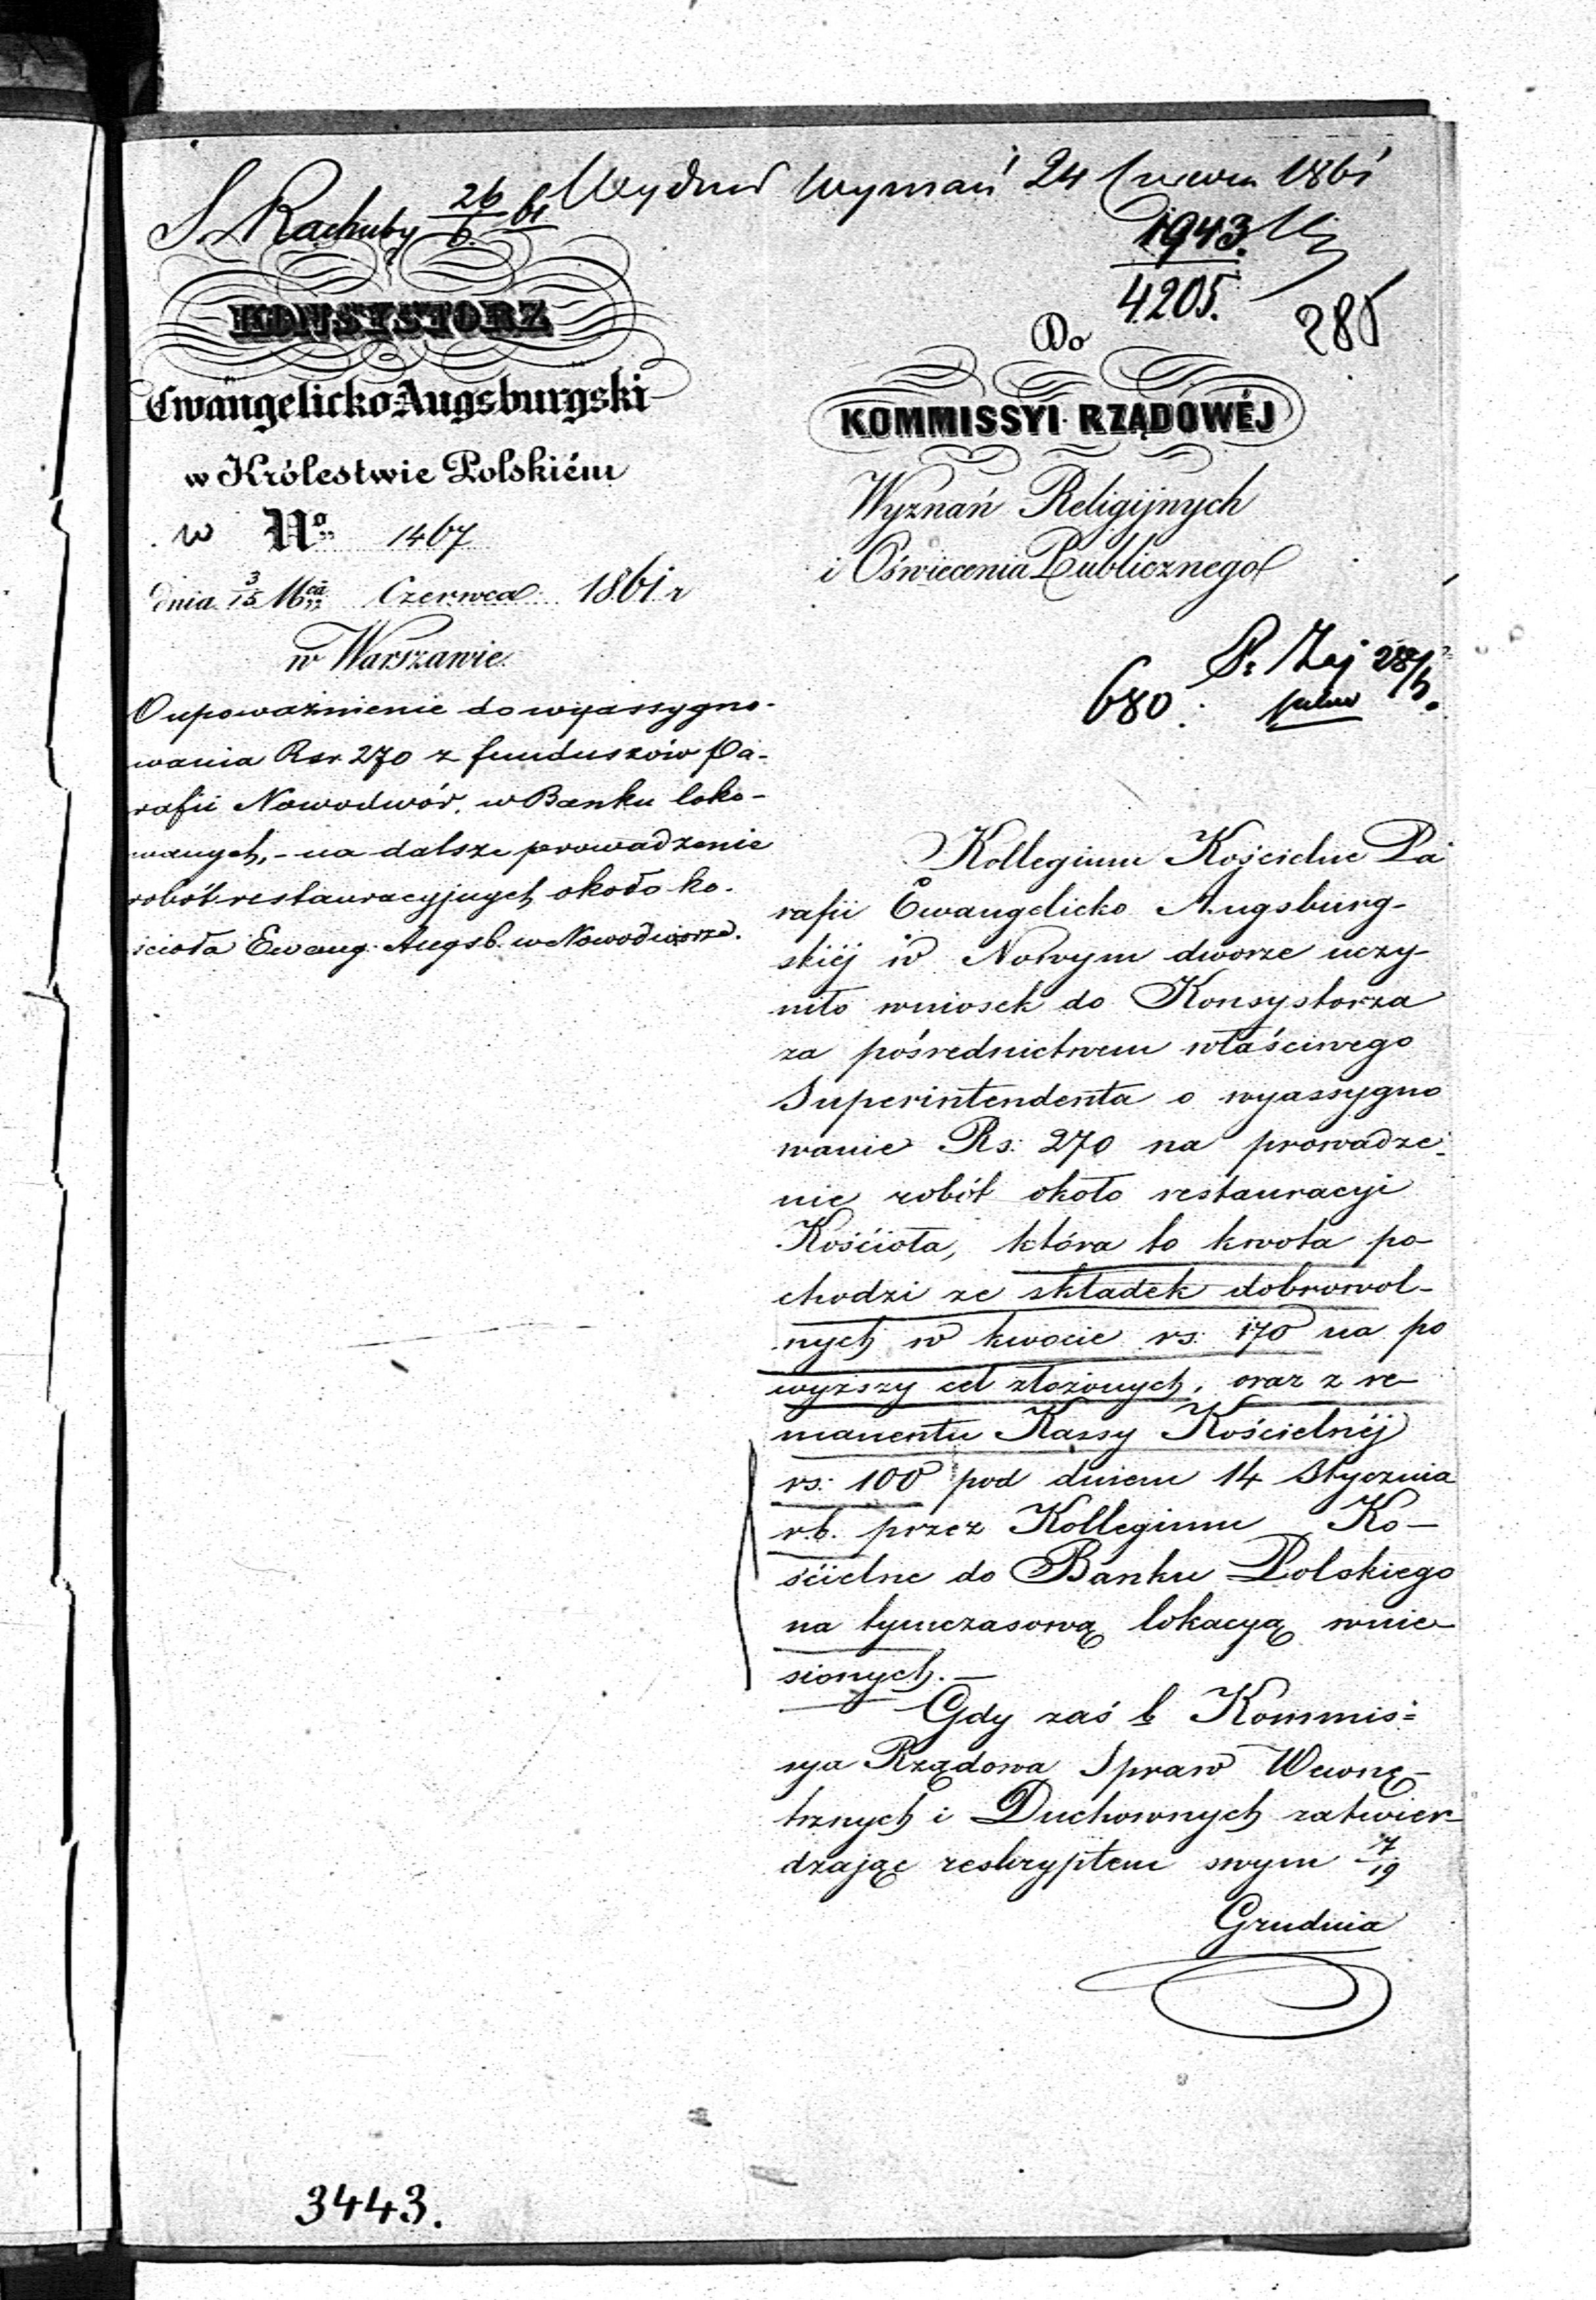 S. Rachuby 26/6 61 Wydział Wyznań 24 Czerwca 1861
1943.
4205.
285
KONSYSTORZ
Ewangelicko-Augsburgski
w Królestwie Polskiém
w No 1467
dnia 3/15 Mca Czerwca 1861 r
w Warszawie.
O upoważnienie do wyassygno-
wania Rsr. 270 z funduszów Pa-
rafii Nowodwór. w Banku loko-
wanych, - na dalsze prowadzenie
robót restauracyjnych około ko-
ścioła Ewang. Augsb. w Nowodworze.
Do
KOMMISSYI RZĄDOWÉJ
Wyznań Religijnych
i Oświecenia Publicznego
28/6.
680.
Kollegium Kościelne Pa
rafii Ewangelicko Augsburg-
skiéj w Nowym dworze uczy-
niło wniosek do Konsystorza
za pośrednictwem właściwego
Superintendenta o wyassygno
wanie Rs. 270 na prowadze-
nie robót około restauracyi
Kościoła, która to kwota po-
chodzi ze składek dobrowol-
nych w kwocie rs. 170 na po
wyższy cel złożonych, oraz z re-
manentu Kassy Kościelnéj
rs. 100 pod dniem 14 Stycznia
r.b. przez Kollegium Ko-
ścielne do Banku Polskiego
na tymczasową lokacyą wnie-
sionych. -
Gdy zaś b Kommis-
sya Rządowa Spraw Wewnę-
trznych i Duchownych zatwier-
dzając reskryptem swym 7/19
Grudnia
3443.